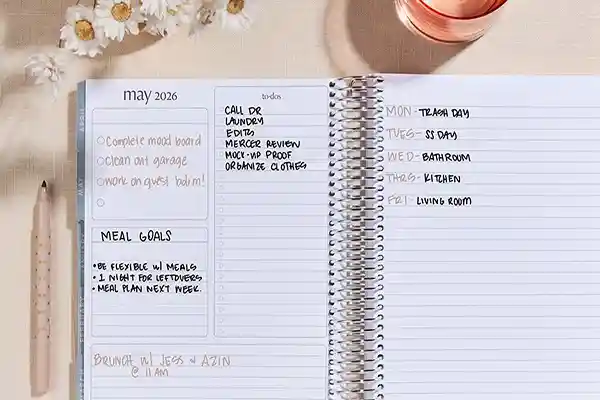 may 2026
Complete mood board
Clean out garage
work on guest bdrm!
MEAL GOALS
•BE FLEXIBLE W/ MEALS
•1 NIGHT FOR LEFTOVERS
•MEAL PLAN NEXT WEEK.
BRUNCH W/ JESS & AZIN
@ 11 AM
to-dos
CALL DR
LAUNDRY
EDITS
MERCER REVIEW
MOCK-UP PROOF
ORGANIZE CLOTHES
MON - TRASH DAY
TUES - SS DAY
WED - BATHROOM
THRS - KITCHEN
FRI - LIVING ROOM
APRIL
MAY